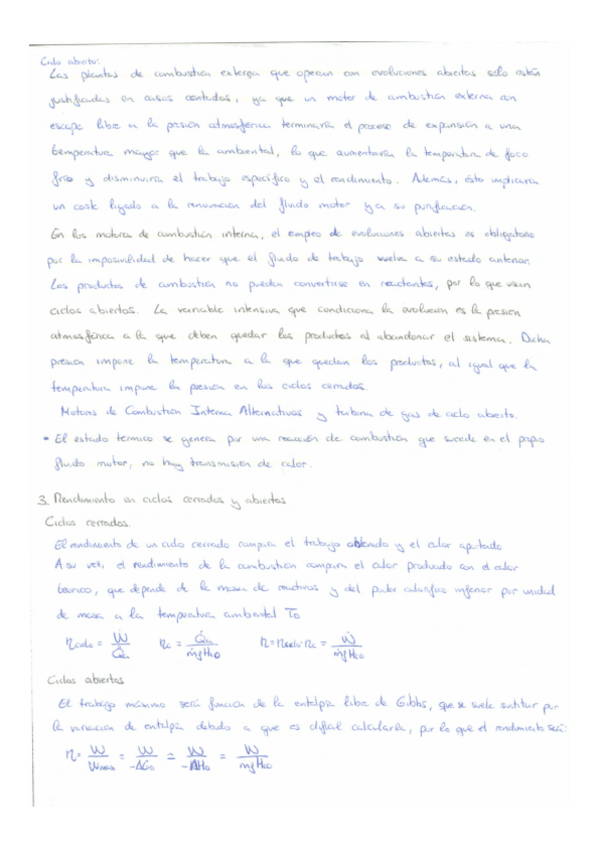 Ciclo abierto:
Las plantas de combustión externa que operan con evoluciones abiertas solo están
justificadas en casos contados, ya que un motor de combustión externa con
escape libre a la presión atmosférica terminaría el proceso de expansión a una
temperatura mayor que la ambiental, lo que aumentaría la temperatura de foco
frío y disminuiría el trabajo específico y el rendimiento. Además, esto implicaría
un coste ligado a la renovación del fluido motor y a su purificación.
En los motores de combustión interna, el empleo de evoluciones abiertas es obligatorio
por la imposibilidad de hacer que el fluido de trabajo vuelva a su estado anterior.
Los productos de combustión no pueden convertirse en reactantes, por lo que usan
ciclos abiertos. La variable intensiva que condiciona la evolución es la presión
atmosférica a la que deben quedar los productos al abandonar el sistema. Dicha
presión impone la temperatura a la que quedan los productos, al igual que la
temperatura impone la presión en los ciclos cerrados.
Motores de Combustión Interna Alternativos y turbina de gas de ciclo abierto.
• El estado térmico se genera por una reacción de combustión que sucede en el propio
fluido motor, no hay transmisión de calor.
3. Rendimiento en ciclos cerrados y abiertos
Ciclos cerrados.
El rendimiento de un ciclo cerrado compara el trabajo obtenido y el calor aportado
A su vez, el rendimiento de la combustión compara el calor producido con el calor
teórico, que depende de la masa de reactivos y del poder calorífico inferior por unidad
de masa a la temperatura ambiental T₀
η ciclo = Ẇ/Q̇a ηc = Q̇a/ṁf Hc0 η = ηciclo·ηc = Ẇ/ṁf Hc0
Ciclos abiertos
El trabajo máximo será función de la entalpía libre de Gibbs, que se suele sustituir por
la variación de entalpía debido a que es difícil calcularla, por lo que el rendimiento será:
η = W/Wmax = W/-ΔG₀ ≃ W/-ΔH₀ = W/mf Hc0